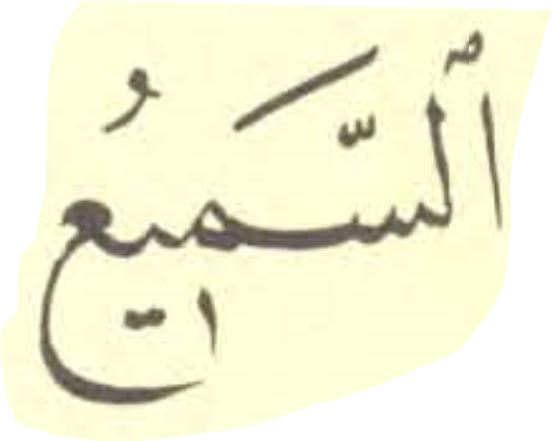 ٱلسَّمٖيعُ